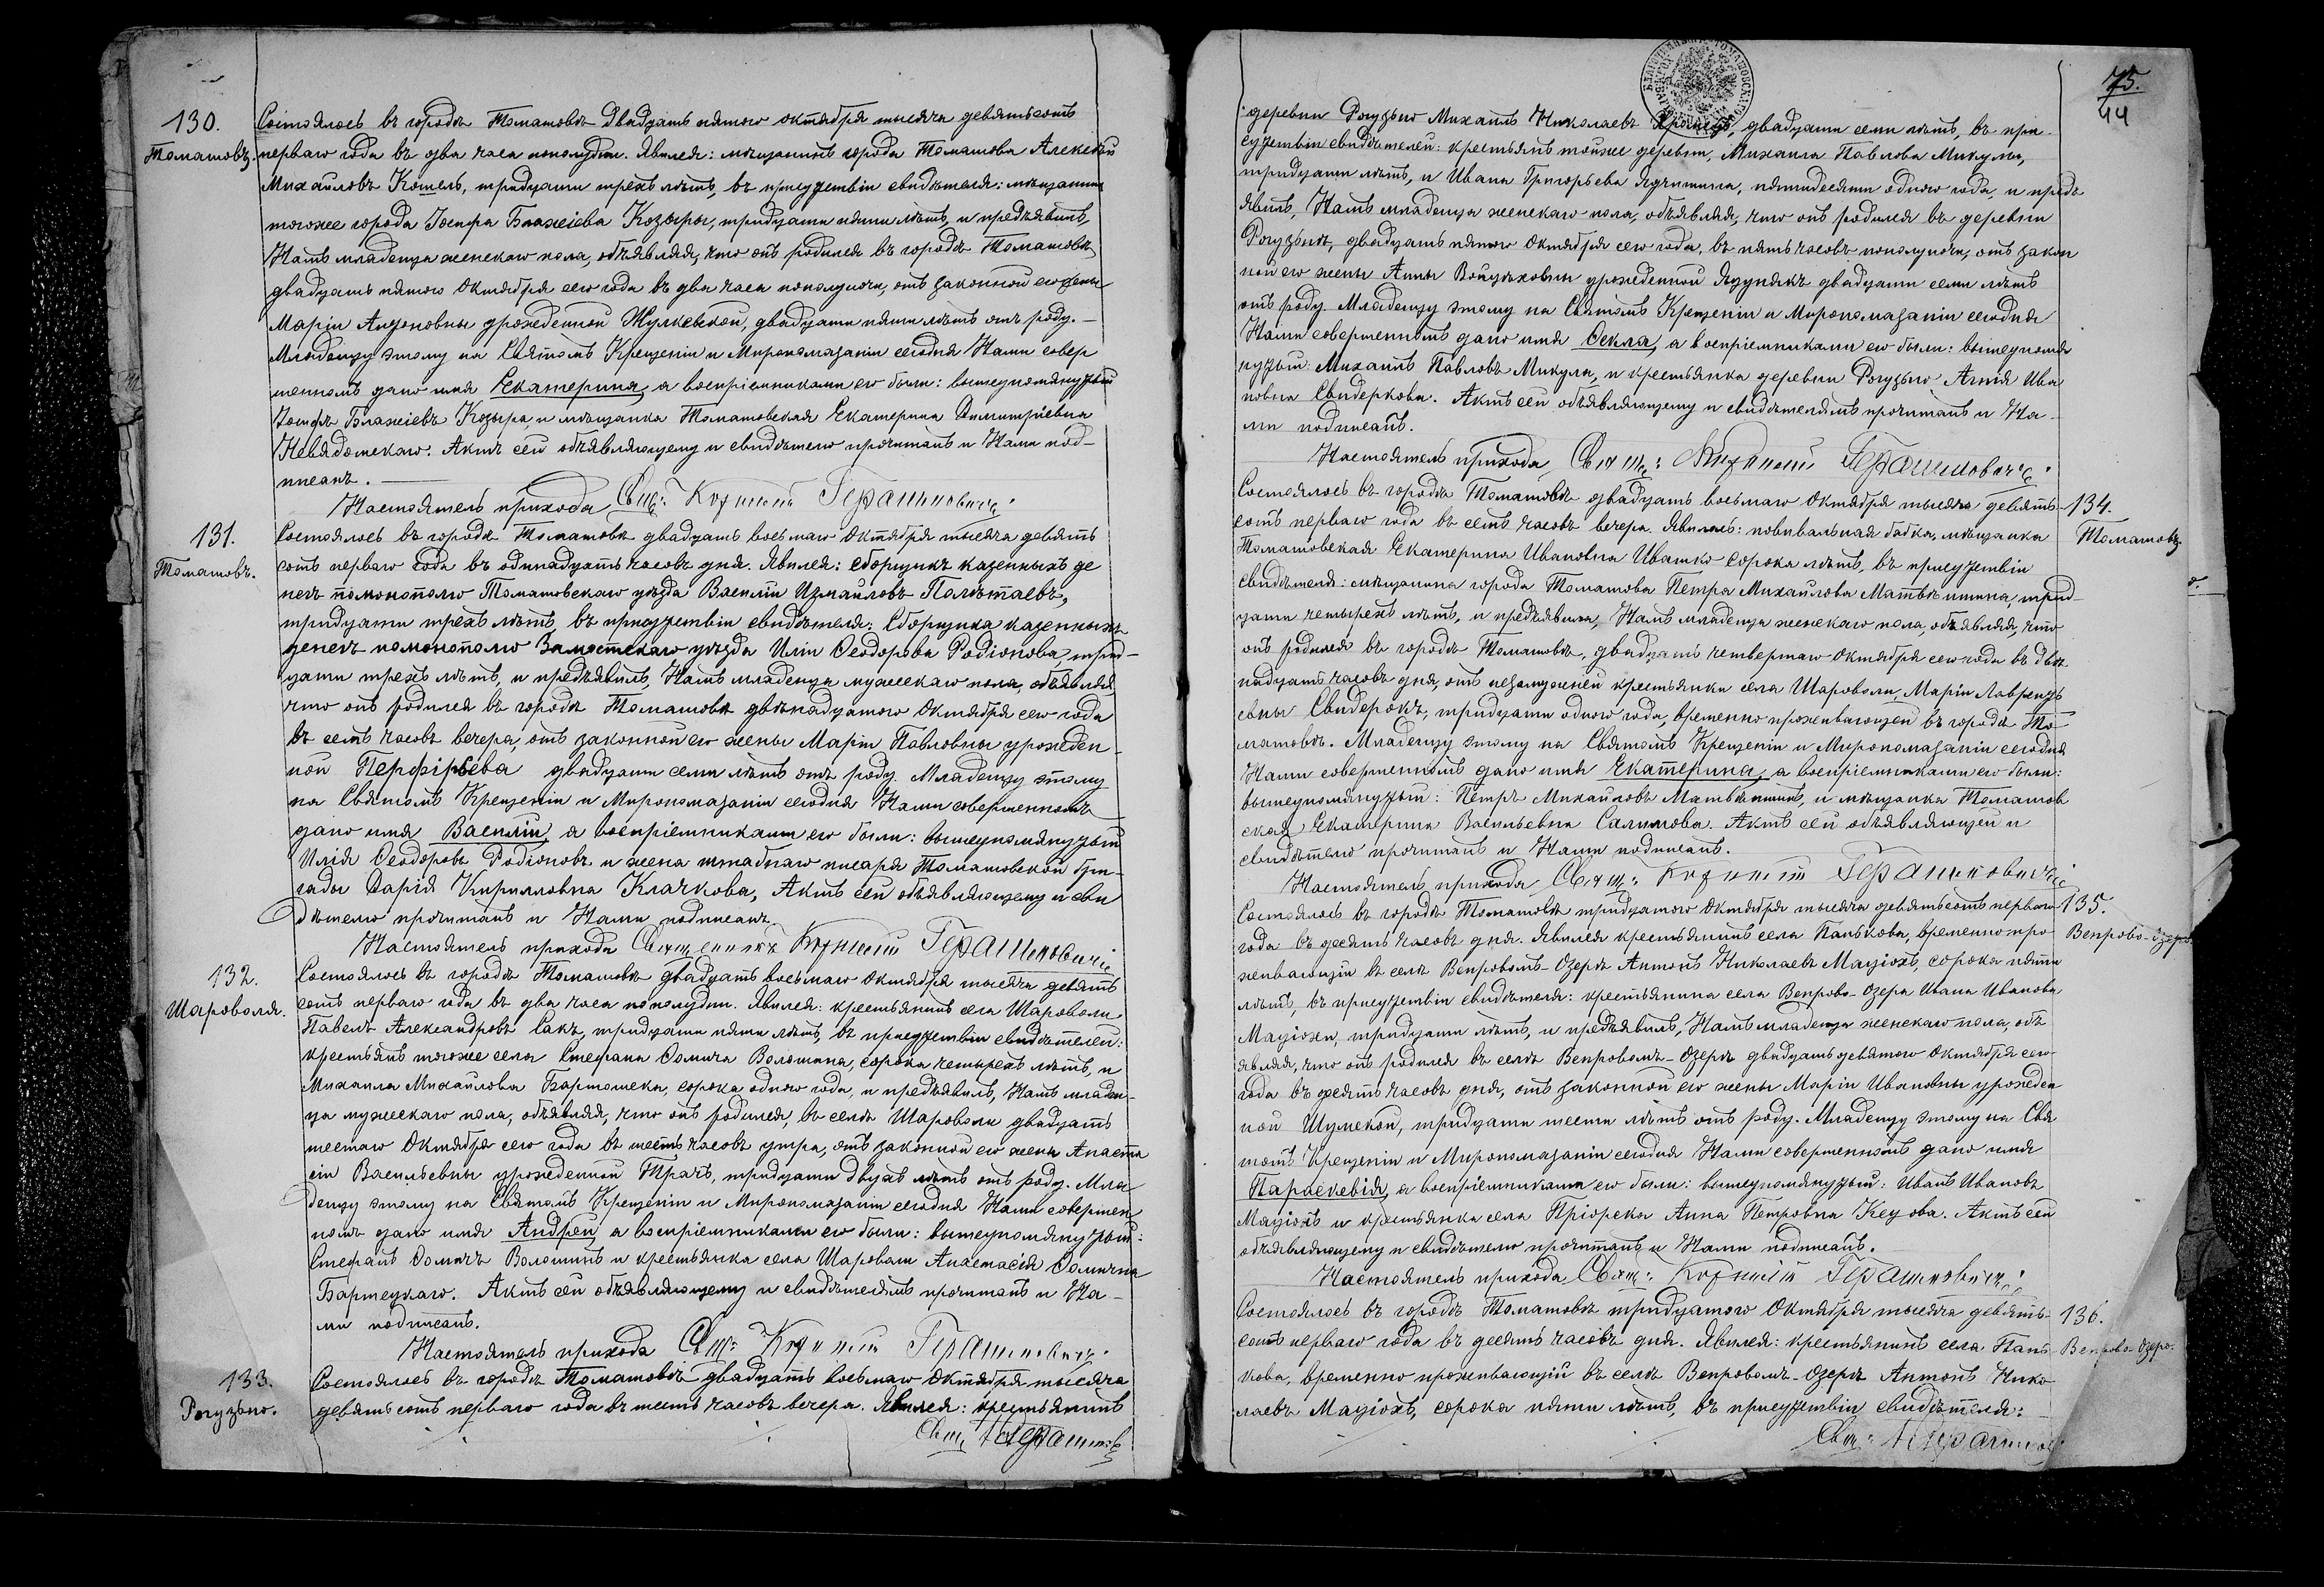 130.
Томашовъ.
Состоялось въ городѣ Томашовѣ двадцать пятого октября тысяча девятьсотъ
перваго года въ два часа пополудни. Явился: мѣщанинъ города Томашова Алексѣй
Михайловъ Кошель, тридцати трехъ лѣтъ, въ присутствіи свидѣтеля: мѣщанина
тогоже города Іосифа Блажіева Козыры, тридцати пяти лѣтъ, и предъявилъ
Намъ младенца женскаго пола, объявляя, что онъ родился въ городѣ Томашовѣ
двадцать пятого Октября сего года въ два часа пополуночи, отъ законной его жены
Маріи Антоновны урожденной Жулкевской, двадцати пяти лѣтъ отъ роду. –
Младенцу этому на Святомъ Крещеніи и Миропомазаніи сегодня Нами совер
шенномъ дано имя Екатерина, а воспріемниками его были: вышеупомянутый
Іосифъ Блажіевъ Козыра, и мѣщанка Томашовская Екатерина Димитріевна
Невядомскаго. Актъ сей объявляющему и свидѣтелю прочитанъ и Нами под–
писанъ.
Настоятель прихода Свщ:
131.
Томашовъ.
Состоялось въ городѣ Томашовѣ двадцать восьмаго Октября тысяча девять
сотъ перваго года въ одинадцать часовъ дня. Явился: сборщикъ казенныхъ де
негъ помонополю Томашовскаго уѣзда Василій Измайловъ Полѣтаевъ,
тридцати трехъ лѣтъ, въ присутствіи свидѣтеля: Сборщика казенныхъ
денегъ помонополю Замостскаго уѣзда Иліи Ѳеодорова Родіонова, трид–
цати трехъ лѣтъ, и предъявилъ, Намъ младенца мужескаго пола, объявляя
что онъ родился въ городѣ Томашовѣ двѣнадцатого Октября сего года
въ семь часовъ вечера, отъ законной его жены Маріи Павловны урожден–
ной Перфирьева двадцати семи лѣтъ отъ роду. Младенцу этому
на Святомъ Крещеніи и Миропомазаніи сегодня Нами совершенномъ
дано имя Василій, а воспріемниками его были: вышеупомянутый
Илія Ѳеодоровъ Родіоновъ и жена штабнаго писаря Томашовской бри–
гады Дарія Кирилловна Клачкова, Актъ сей объявляющему и сви
дѣтелю прочитанъ и Нами подписанъ.
Настоятель прихода Священникъ
132.
Шароволя.
Состоялось въ городѣ Томашовѣ двадцать восьмаго Октября тысяча девять
сотъ перваго года въ два часа пополудни. Явился: крестьянинъ села Шароволи
Павелъ Александровъ Сакъ, тридцати пяти лѣтъ, въ присутствіи свидѣтелей:
крестьянъ тогоже села Стефана Ѳомича Волошина, сорока четырехъ лѣтъ, и
Михаила Михайлова Бартошека, сорока одного года, и предъявилъ, Намъ младен–
ца мужескаго пола, объявляя, что онъ родился, въ селѣ Шароволи двадцать
шестаго Октября сего года въ шесть часовъ утра, отъ законной его жены Анаста
сіи Васильевны урожденной Трачъ, тридцати двухъ лѣтъ отъ роду. Мла–
денцу этому на Святомъ Крещеніи и Миропомазаніи сегодня Нами совершен
номъ дано имя Андрей, а воспріемниками его были: вышеупомянутый:
Стефанъ Ѳомичъ Волошинъ и крестьянка села Шароволи Анастасія Ѳомична
Бартецкаго. Актъ сей объявляющему и свидѣтелямъ прочитанъ и На–
ми подписанъ.
Настоятель прихода Свщ:
133.
Рогузьно.
Состоялось въ городѣ Томашовѣ двадцать восьмаго Октября тысяча
девятьсотъ перваго года въ шесть часовъ вечера. Явился: крестьянинъ
75.
44
деревни Рогузьно Михаилъ Николаевъ двадцати семи лѣтъ, въ при–
сутствіи свидѣтелей: крестьянъ тойже деревни, Михаила Павлова Микулы,
тридцати лѣтъ, и Ивана Григорьева пятидесяти одного года, и предъ
явилъ, Намъ младенца женскаго пола, объявляя, что онъ родился въ деревни
Рогузьнѣ, двадцать пятого Октября сего года, въ пять часовъ пополуночи, отъ закон
ной его жены Анны Войцѣховны урожденной двадцати семи лѣтъ
отъ роду. Младенцу этому на Святомъ Крещеніи и Миропомазаніи сегодня
Нами совершенномъ дано имя Ѳекла, а воспріемниками его были: вышеупомя
нутый: Михаилъ Павловъ Микула, и крестьянка деревни Рогузьно Агнія Ива
новна Свидеркова. Актъ сей объявляющему и свидѣтелямъ прочитанъ и На–
ми подписанъ.
Настоятель прихода Свящ:
134.
Томашовъ.
Состоялось въ городѣ Томашовѣ двадцать восьмаго Октября тысяча девять–
сотъ перваго года въ семь часовъ вечера. Явилась: повивальная бабка, мѣщанка
Томашовская Екатерина Ивановна Ивашко сорока лѣтъ, въ присутствіи
свидѣтеля: мѣщанина города Томашова Петра Михайлова трид–
цати четырехъ лѣтъ, и предъявила, Намъ младенца женскаго пола, объявляя, что
онъ родился въ городѣ Томашовѣ, двадцать четвертаго Октября сего года въ двѣ
надцать часовъ дня, отъ незамужней крестьянки села Шароволи Маріи Лаврентъ
евны Свидерокъ, тридцати одного года, временно проживающей въ городѣ То–
машовѣ. Младенцу этому на Святомъ Крещеніи и Миропомазаніи сегодня
Нами совершенномъ дано имя Екатерина, а воспріемниками его были:
вышеупомянутый: Петръ Михайловъ и мѣщанка Томашов
ская Екатерина Васильевна Салимова. Актъ сей объявляющей и
свидѣтелю прочитанъ и Нами подписанъ.
Настоятель прихода Свящ:
135.
Вепрово-Озеро.
Состоялось въ городѣ Томашовѣ тридцатого Октября тысяча девятьсотъ перваго
года въ десять часовъ дня. Явился крестьянинъ села Панькова, временно про
живающій въ селѣ Вепровомъ-Озерѣ Антонъ Николаевъ Маціохъ, сорока пяти
лѣтъ, въ присутствіи свидѣтеля: крестьянина села Вепрово-Озера Ивана Иванова
Маціохи, тридцати лѣтъ, и предъявилъ, Намъ младенца женскаго пола, объ
являя, что онъ родился въ селѣ Вепровомъ-Озерѣ двадцать девятого Октября сего
года въ десять часовъ дня, отъ законной его жены Маріи Ивановны урожден
ной Шумской, тридцати шести лѣтъ отъ роду. Младенцу этому на Свя
томъ Крещеніи и Миропомазаніи сегодня Нами совершенномъ дано имя
Параскевія, а воспріемниками его были: вышеупомянутый: Иванъ Ивановъ
Маціохъ и крестьянка села Пріорска Анна Петровна Актъ сей
объявляющему и свидѣтелю прочитанъ и Нами подписанъ.
Настоятель прихода Свящ:
136.
Вепрово-Озеро.
Состоялось въ городѣ Томашовѣ тридцатого Октября тысяча девять–
сотъ перваго года въ десять часовъ дня. Явился: крестьянинъ села Пань–
кова, временно проживающій въ селѣ Вепровомъ-Озерѣ Антонъ Нико
лаевъ Маціохъ, сорока пяти лѣтъ, въ присутствіи свидѣтеля: